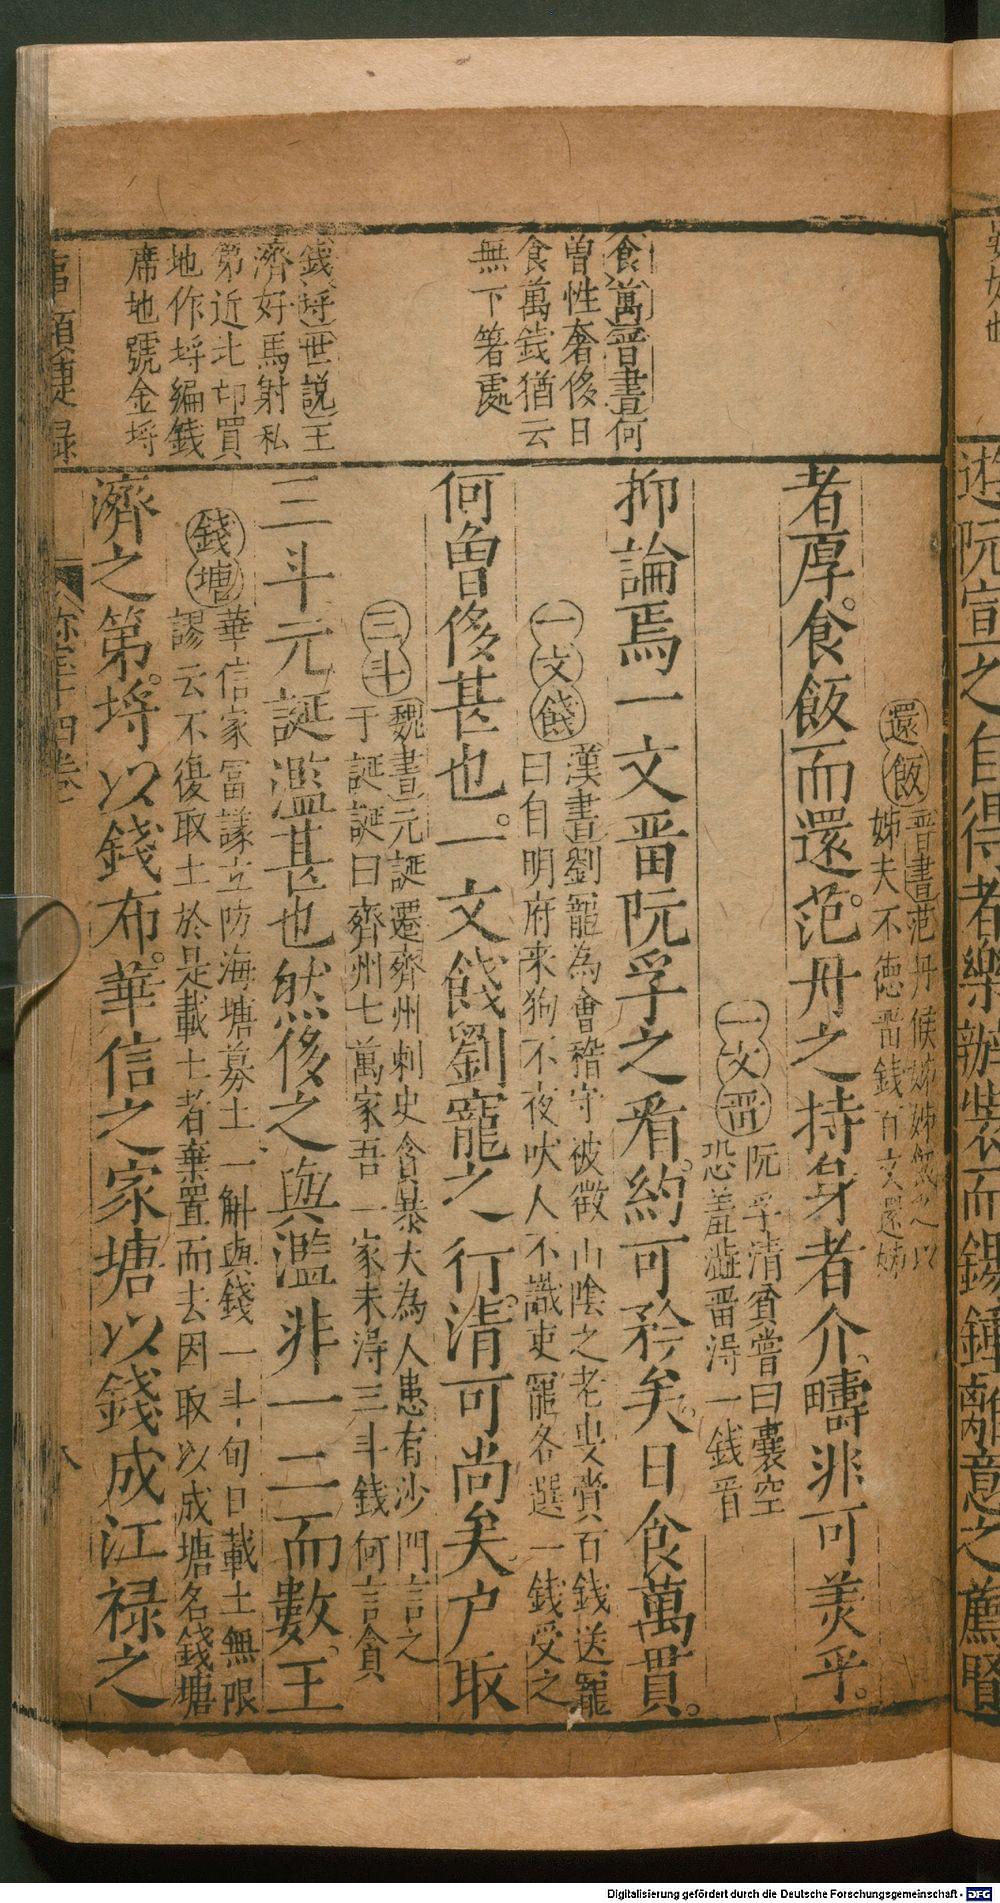 食萬晋書何
曽性奢侈日
食萬錢猶云
無下箸處
錢埒世説王
濟好馬射私
第近北邙買
地作埒編錢
席地號金埒
還飯
晋書范丹候姊姊飯之以
姊夫不徳畱錢百文還姊
者厚食飯而還范丹之持身者介疇非可羙乎
一文畱
阮孚清貧嘗曰嚢空
恐羞澁畱淂一錢㸔
抑論焉一文畱阮孚之㸔約可矜矣日食萬貫
一文餞
漢書劉寵為會稽守被徴山陰之老叟賫百錢送寵
曰自明府来狗不夜吠人不識吏寵各選一錢受之
何曽侈甚也一文餞劉寵之行清可尚矣户取
三斗
魏書元誕遷齊州刺史貪暴大為人患有沙門言之
于誕誕曰齊州七萬家吾一家未淂三斗錢何言貪
三斗元誕濫甚也然侈之與濫非一二而數王
錢塘
華信家冨議立防海塘募土一斛與錢一斗旬日載土無限
謬云不復取土於是載土者棄置而去因取以成塘名錢塘
濟之第埒以錢布華信之家塘以錢成江禄之
遊阮宣之自得者樂辦装而錫鍾離意之薦賢